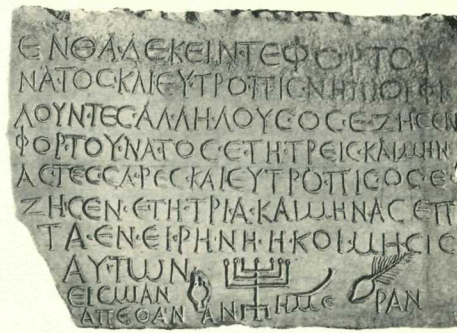 ΕΝΘΑ·ΔΕΚΕΙΝ·ΤΕΦΟΡΤΟΥ
ΝΑΤΟϹΚΑΙΕΥΤΡΟΠΙϹΝΗΠΙΟΙΦΙ
ΛΟΥΝΤΕϹΑΛΛΗΛΟΥϹΟϹΕ·ΖΗϹΕΝ
ΦΟΡΤΟΥ·ΝΑΤΟϹ·Ε·ΤΗ·ΤΡΕΙϹ·ΚΑΙΜΗΝ
ΑϹ·ΤΕϹϹΑ·ΡΕϹ·ΚΑΙΕΥΤΡΟΠΙϹΟϹΕ
ΖΗϹΕΝ·ΕΤΗ·ΤΡΙΑ·ΚΑΙΜΗΝΑϹΕΠ
ΤΑ·ΕΝ·ΕΙ·ΡΗΝΗ·Η·ΚΟΙΜΗϹΙϹ
ΑΥ·ΤΩΝ
ΕΙϹΜΙΑΝ
ΑΠΕΘΑΝ ΑΝ ΗΜΕ ΡΑΝ